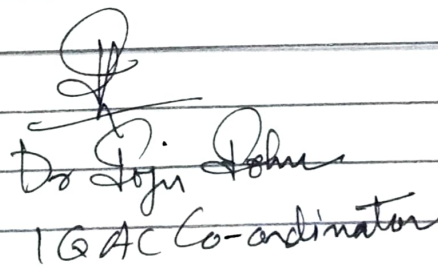 Dr John
IQAC Co-ordinator